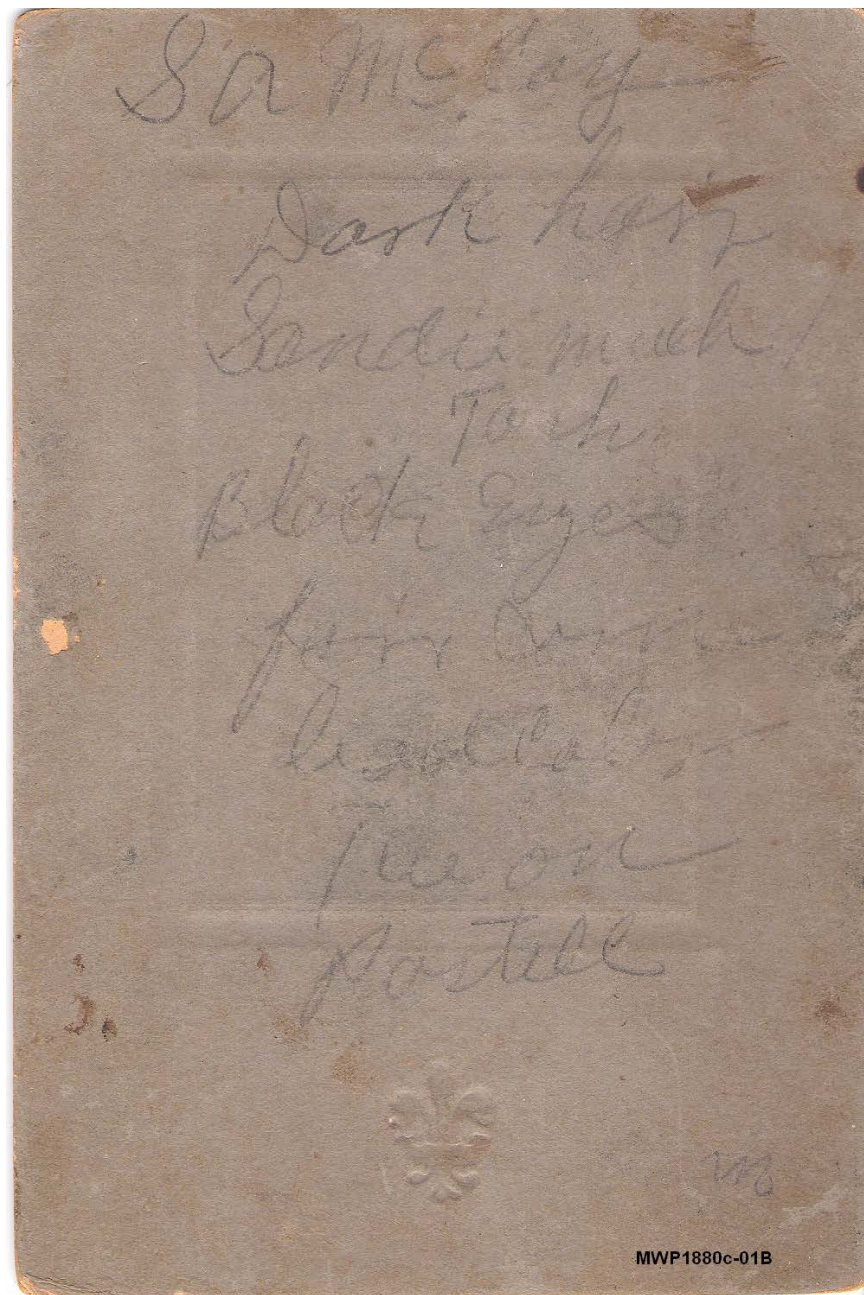 S A McCoy
Dark hair
Sandie much
Tach
Black Eyes
fair
Tie on
Pastell
MWP1880c-01B